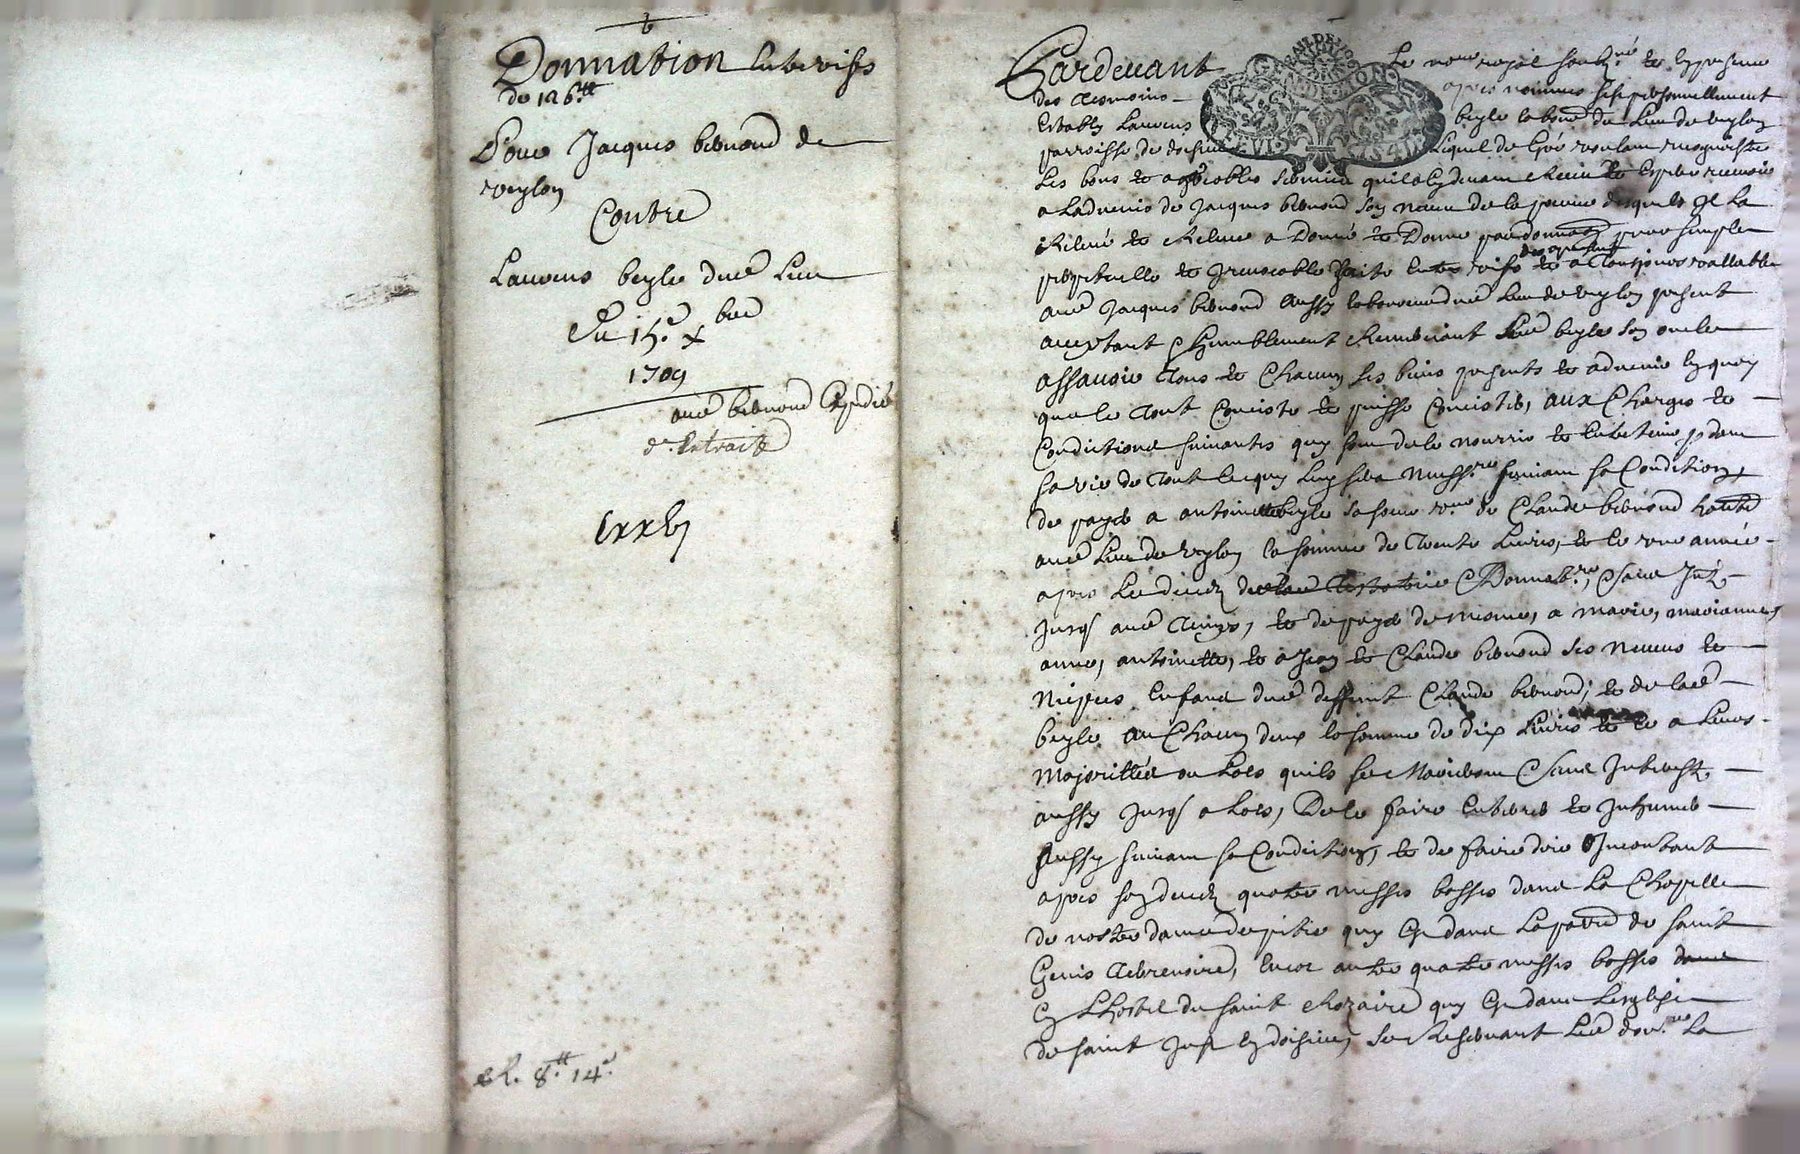 Donnation Entrevifs
de 126.tt
Pour Jacques bernard de
veylon
Contre
Laurens beyle dud Lieu
Du 15.e Xbre
1709
aud bernard Expedié
d. Extraict
R. 8.tt 14.s
Pardevant Le no.re royal soub.né et En presence
des tesmoins apres nommes sest personnellement
Estably Laurens beyle laboure.r du Lieu de veylon
parroisse de Lequel de Gré voulant recognoistre
Les bons et agreables services quil a Cydevant receu et Espere recevoir
a Ladvenir de Jacques bernard son neveu de la preuve desquels Il La
Releué et Releue a Donné et Donne par donnaon pure simple
perpetuelle et Irrevocable faite Entre vifs et a tousjours vallable
des apresent
aud Jacques bernard aussy laboureur dud Lieu de veylon present
aceptant & humblement Remerciant Led beyle son oncle
assavoir tous et Chacuns ses biens presents et advenir En quoy
que le tout Conciste et puisse Concister, aux Charges et
Condictions suivantes quy sont de le nourrir et Entretenir pdant
sa vie de tout Ce quy Luy sera necess.re suivant sa Condition,
de payer a antoinette beyle sa soeur ve.ve de Claude bernard
aud Lieu de veylon la somme de trente Livres, et ce une année
apres Le deceds du Donnat.re, & sans Int.
Jusq aud temps, et de payer de mesme, a marie, marianne,
anne, antoinette, et a Jean et Claude bernard ses neveus et
Niepces Enfans dud deffunt Claude bernard, et de lad
beyle. au Chacun deux la somme de dix Livres et ce a Leurs
Majorittés ou Lors quils se Marieront & sans Interest
aussy Jusq a Lors, De le faire Enterrer et Inhumer
aussy suivant sa Condiction, et de faire dire Incontant
apres son deceds quatre messes basses dans La Chapelle
de nostre dame de pitié quy Est dans La parr.e de saint
Genis terrenoire, Encor autre quatre messes basses dans
En Lhostel du saint Rozaire quy Est dans Lesglise
de saint Just En doisieu, se Reservant Led don.
La